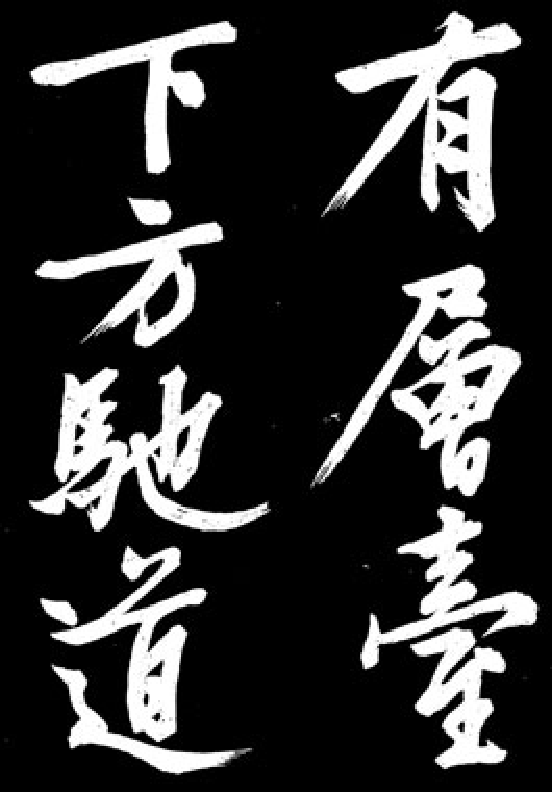 有層臺
下方馳道